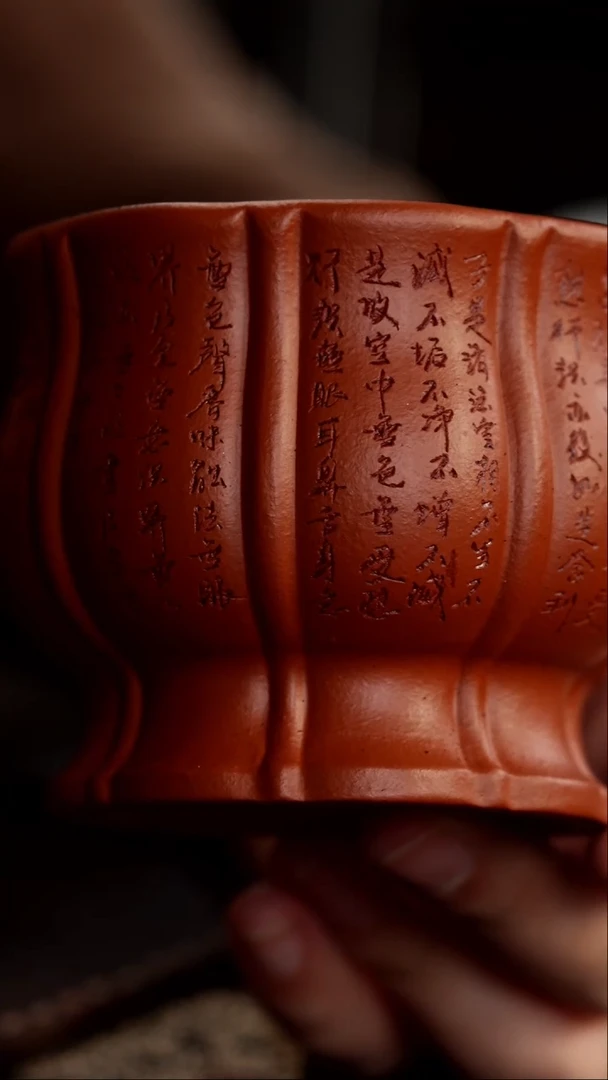 想行識亦復如是舍利
子是諸法空相不生不
滅不垢不淨不增不減
是故空中無色無受想
行識無眼耳鼻舌身意
無色聲香味觸法無眼
界乃至無意識界無